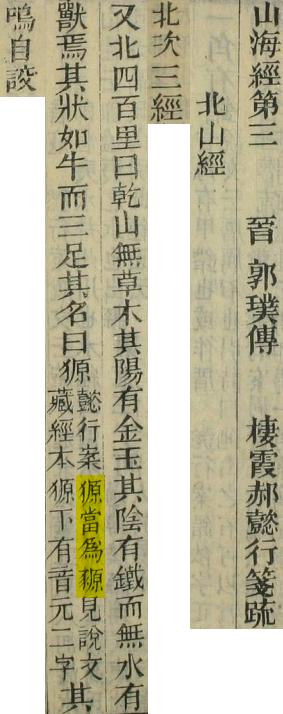 山海經第三　晉　郭璞傳　棲霞郝懿行箋疏
北山經
北次三經
又北四百里曰乾山無草木其陽有金玉其陰有鐵而無水有
獸焉其狀如牛而三足其名曰獂懿行案獂當爲豲見說文藏經本獂下有音元二字其
鳴自詨